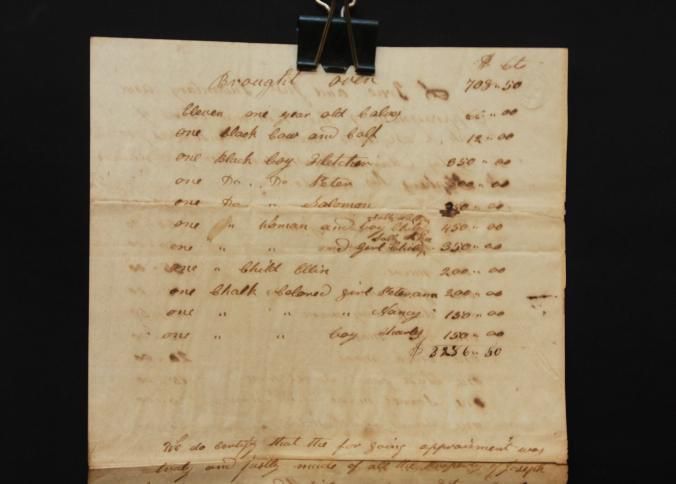 $ cts
Brought over 708"50
Eleven one year old Calves "00
one black Cow and Calf 12"00
one black boy Fletcher 650"00
one Do. Do Peter 00"00
one Do " Solomon "00
one " Woman and boy Child 450"00
one " " and girl Child 350"00
one " Child Ellin 200"00
one Chalk Colored girl Peterann 200"00
one " " " Nancy 150"00
one " " boy Charles 150"00
$ 3256"50
We do certify that the for going appraisment was
truly and justly made of all the Property of Joseph